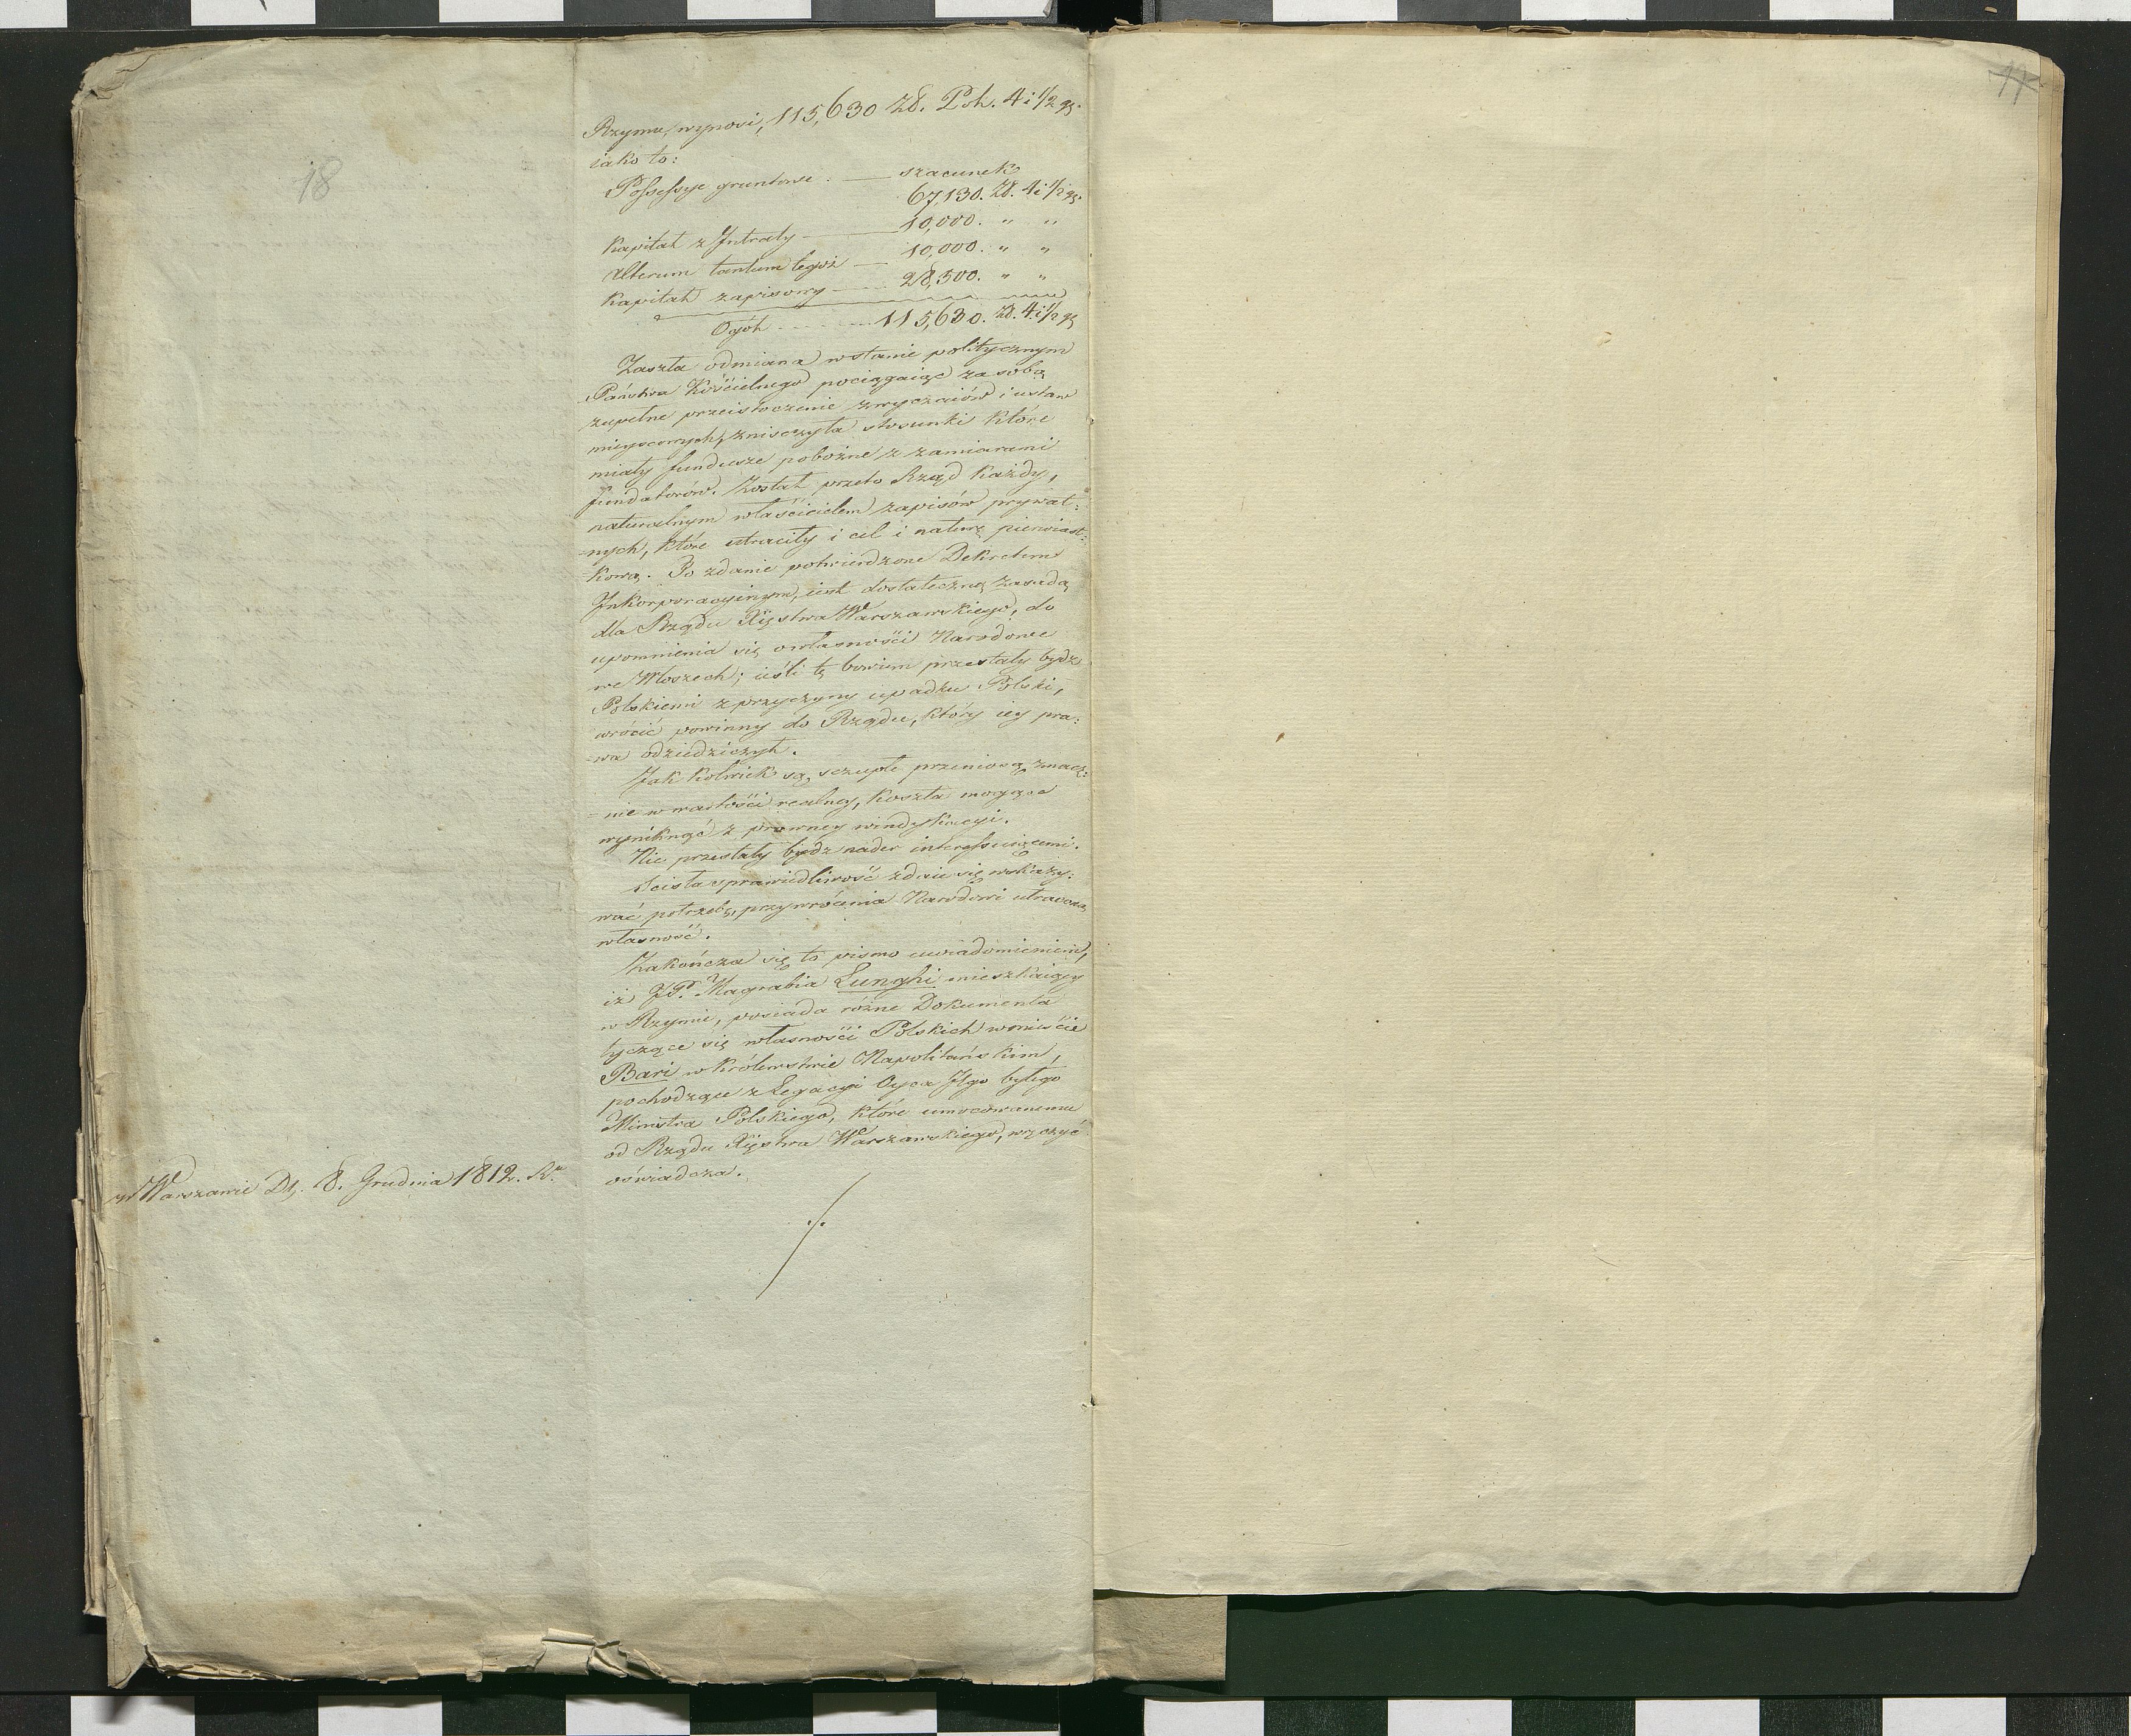 18
17
Rzymu, wynosi, 115,630 Zł. Pol. 4 i 1/2 gr.
iako to:
Possessye gruntowe. — szacunek
67,130. Zł. 4 i 1/2 gr.
Kapitał z Intraty — 10,000. " "
Alterum tantum tegoż — 10,000. " "
Kapitał zapisowy — 28,500. " "
Ogół - - - - - 115,630. Zł. 4 i 1/2 gr
Zaszła odmiana w stanie politycznym
Państwa Kościelnego pociągaiąc za sobą
zupełne przeistoczenie zwyczaiów i ustaw
mieyscowych, zniszczyła stosunki które
miały fundusze pobożne z zamiarami
fundatorów. Został przeto Rząd każdy,
naturalnym właścicielem zapisów prywat=
=nych, które utraciły i cel i naturę pierwiast=
kową. To zdanie potwierdzone Dekretem
Inkorporacyinym, iest dostateczną zasadą
dla Rządu Xięstwa Warszawskiego, do
upomnienia się o własności Narodowe
we Włoszech; ieśli tę bowiem przestały bydź
Polskiemi z przyczyny upadku Polski,
wrócić powinny do Rządu, który iey pra=
=wa odziedziczył.
Jak kolwiek są szczupłe przeniosą znacz=
=nie w wartości realney, koszta mogące
wyniknąć z prawney windykacyi.
Nie przestały bydź nader interessuiącemi.
Ścisła sprawiedliwość zdaie się wskazy=
wać potrzebę, przywrócenia Narodowi utraconą
własność.
Zakończa się to pismo uwiadomieniem,
iż JP. Magrabia Lunghi mieszkaiący
w Rzymie, posiada różne Dokumenta
tyczące się własności Polskich w mieście
Bari w Królewstwie Napolitańskim,
pochodzące z Legacyi Oyca Jgo byłego
Ministra Polskiego, które umocowanemu
od Rządu Xięstwa Warszawskiego, wręczyć
oświadcza.
w Warszawie D. 8. Grudnia 1812. R.